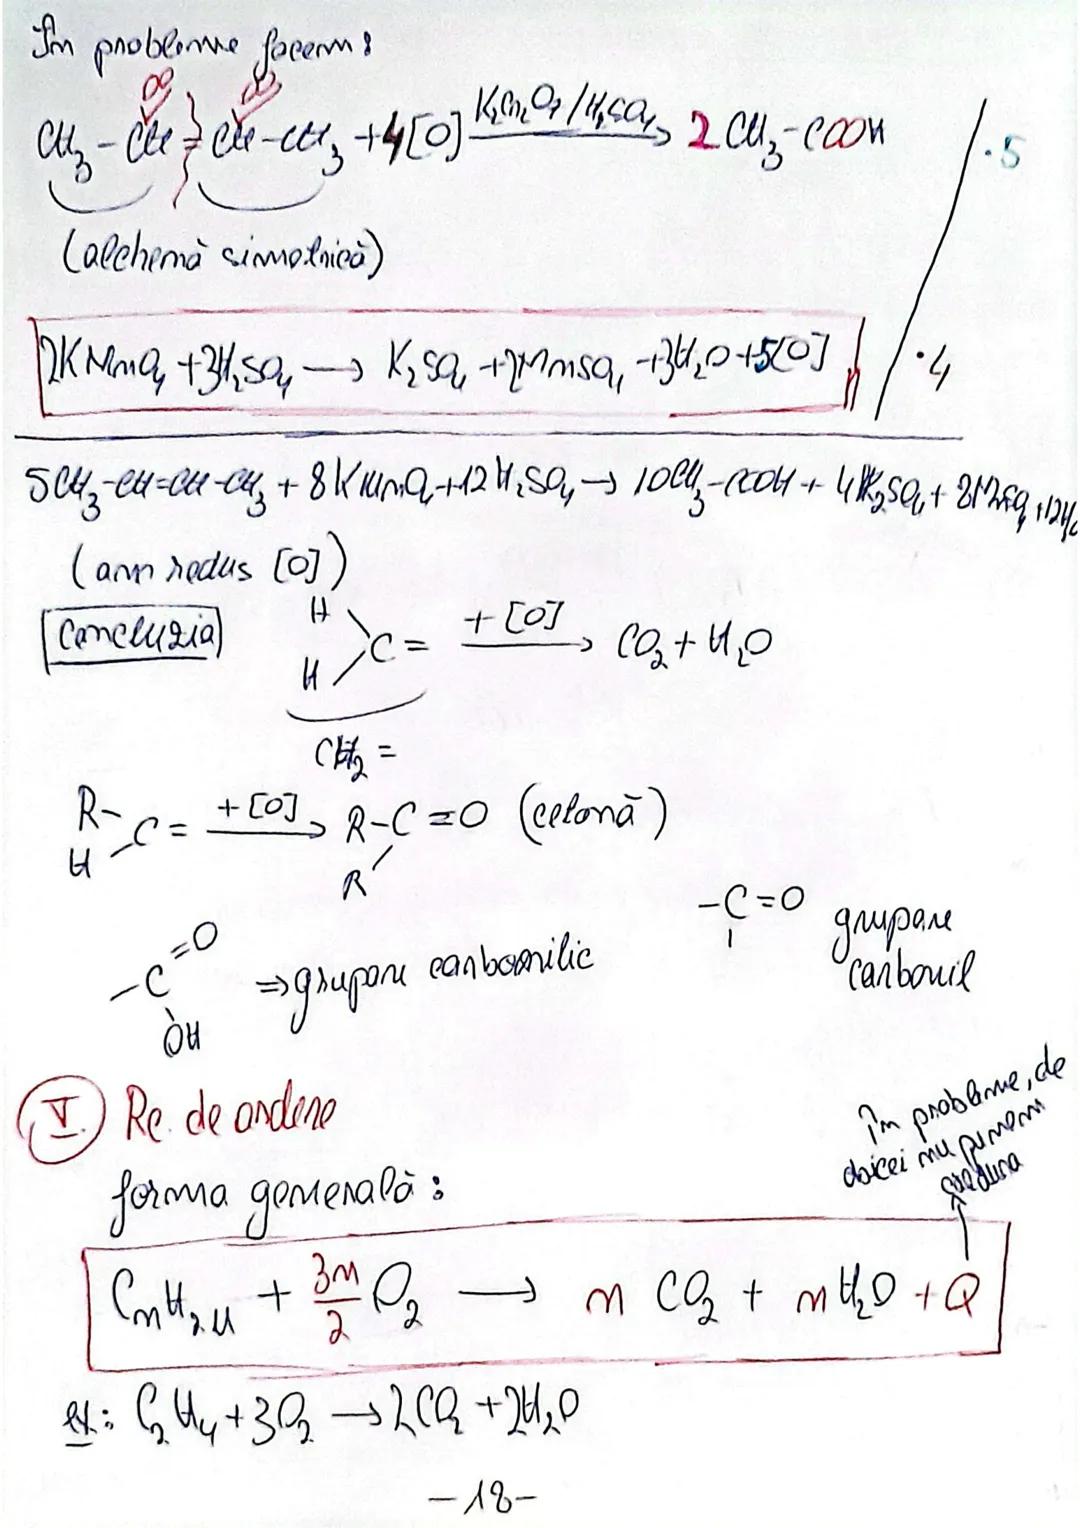 În probleme facem:
CH₃ - CH = CH - CH₃ + 4[O] K₂Cr₂O₇/H₂SO₄ → 2 CH₃-COOH | ·5
(alchenă simetrică)
2KMnO₄ + 3H₂SO₄ → K₂SO₄ + 2MnSO₄ + 3H₂O + 5[O] | ·4
5CH₃-CH=CH-CH₃ + 8KMnO₄ + 12H₂SO₄ → 10CH₃-COOH + 4K₂SO₄ + 8MnSO₄ + 12H₂
(am redus [O])
Concluzia
H
H
C= + [O] → CO₂ + H₂O
CH₂ =
R-
H
C= + [O] → R-C=O (cetonă)
R
-C=O
OH
⇒ grupare carboxilic
-C=O grupare
carbonil
V. Re. de ardere
În probleme, de
obicei nu punem
căldura
forma generală:
CnH₂n + 3n/2 O₂ → n CO₂ + nH₂O + Q
ex: C₂H₄ + 3O₂ → 2CO₂ + 2H₂O
-18-